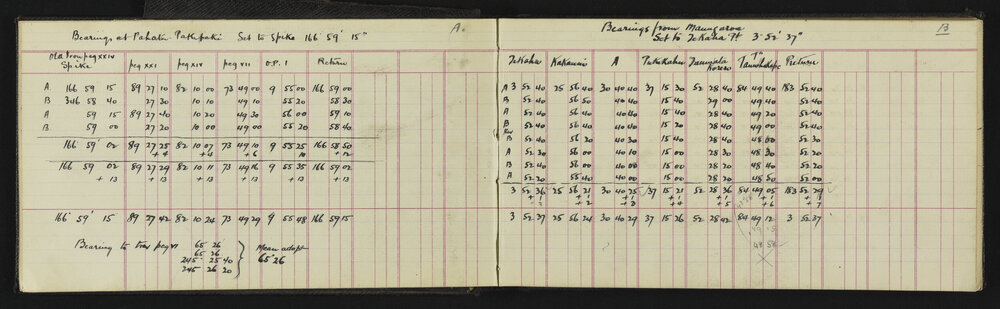 A.
Bearings at Pahatu Patepaki Set to Spike 166° 59' 15"
Old Iron peg XXIV
Spike peg XXI peg XIV peg VII O.P. 1 Return
A 166 59 15 89 27 10 82 10 00 73 49 00 9 55 00 166 59 00
B 346 58 40 27 30 10 10 49 10 55 20 58 30
A 59 15 89 27 40 10 20 49 30 56 00 59 10
B 59 00 27 20 10 00 49 00 55 20 58 40
166 59' 02 89 27 25 82 10 07 73 49 10 9 55 25 166 58 50
+4 +4 +6 10 +12
166 59 02 89 27 29 82 10 11 73 49 16 9 55 35 166 59 02
+13 +13 +13 +13 +13 +13
166° 59' 15 89 27 42 82 10 24 73 49 29 9 55 48 166 59 15
Bearing to trav peg VI 65 26
65 26
245 25 40
245 26 20
Mean adopt
65° 26
B
Bearings from Maungaroa
Set to Tekaha Pt 3° 52' 37"
Tekaha Kakanui A Pukekahu Return
A 3 52 40 25 56 40 30 40 40 37 15 30 52 28 40 84 49 40 183 52 40
B 52 40 40 15 40 29 00 52 40
A 52 40 56 40 40 40 15 40 28 40 49 00 52 40
B 52 40 15 20 28 40 49 00
B 52 40 56 20 40 30 15 00 28 20 48 40 52 20
A 52 30 56 00 40 10 15 00 28 30 52 20
B 52 40 56 00 40 00 15 00 28 20 52 20
A 52 20 55 40 40 00 15 00 28 20 52 00
3 52 36 25 56 21 30 40 25 37 15 21 52 28 36 84 49 05 183 52 29
3 52 37 25 56 24 30 40 29 37 15 26 52 28 42 84 49 12 3 52 37